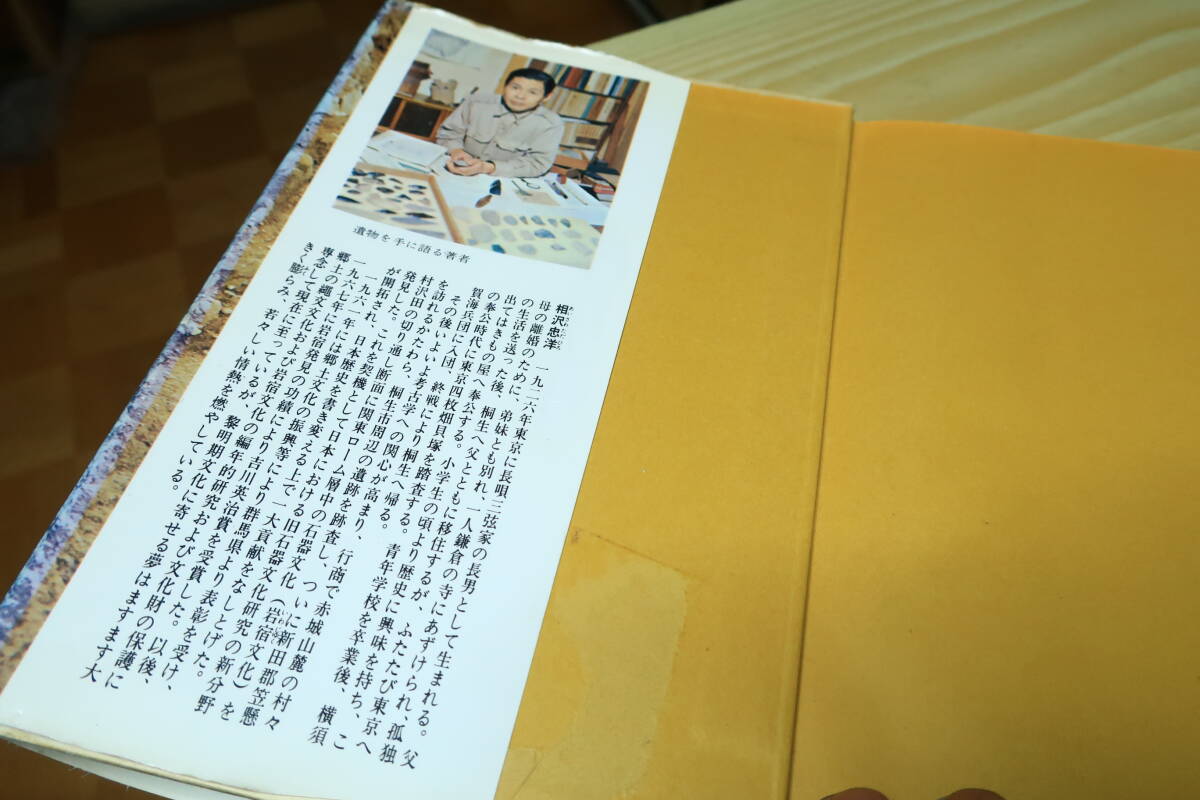 遺物を手に語る著者
相沢忠洋　一九二六年東京に長唄三弦家の長男として生まれる。父
母の離婚のために、弟妹とも別れ、一人鎌倉の寺にあずけられ、孤独
の生活を送った後、桐生へ父とともに移住するが、ふたたび東京へ
出てはきもの屋へ奉公する。小学生の頃より歴史に興味を持ち、こ
の奉公時代に東京四枚畑貝塚を踏査する。青年学校を卒業後、横須
賀海兵団に入団、終戦により桐生へ帰る。
その後いよいよ考古学への関心が高まり、行商で赤城山麓の村々
を訪れるかたわら、桐生市周辺の遺跡を跡査し、ついに新田郡笠懸
村沢田の切り通し断面に関東ローム層中の石器文化（岩宿文化）を
発見した。これを契機として日本における旧石器文化研究の新分野
が開拓され、日本歴史を書き変える上で一大貢献をなしとげた。
一九六一年、郷土文化の振興等により群馬県より表彰を受け、
一九六七年には岩宿発見の功績により吉川英治賞を受賞した。以後、
郷土の縄文文化および岩宿文化の編年的研究および文化財の保護に
専念して現在に至っているが、黎明期文化に寄せる夢はますます大
きく膨らみ、若々しい情熱を燃やしている。